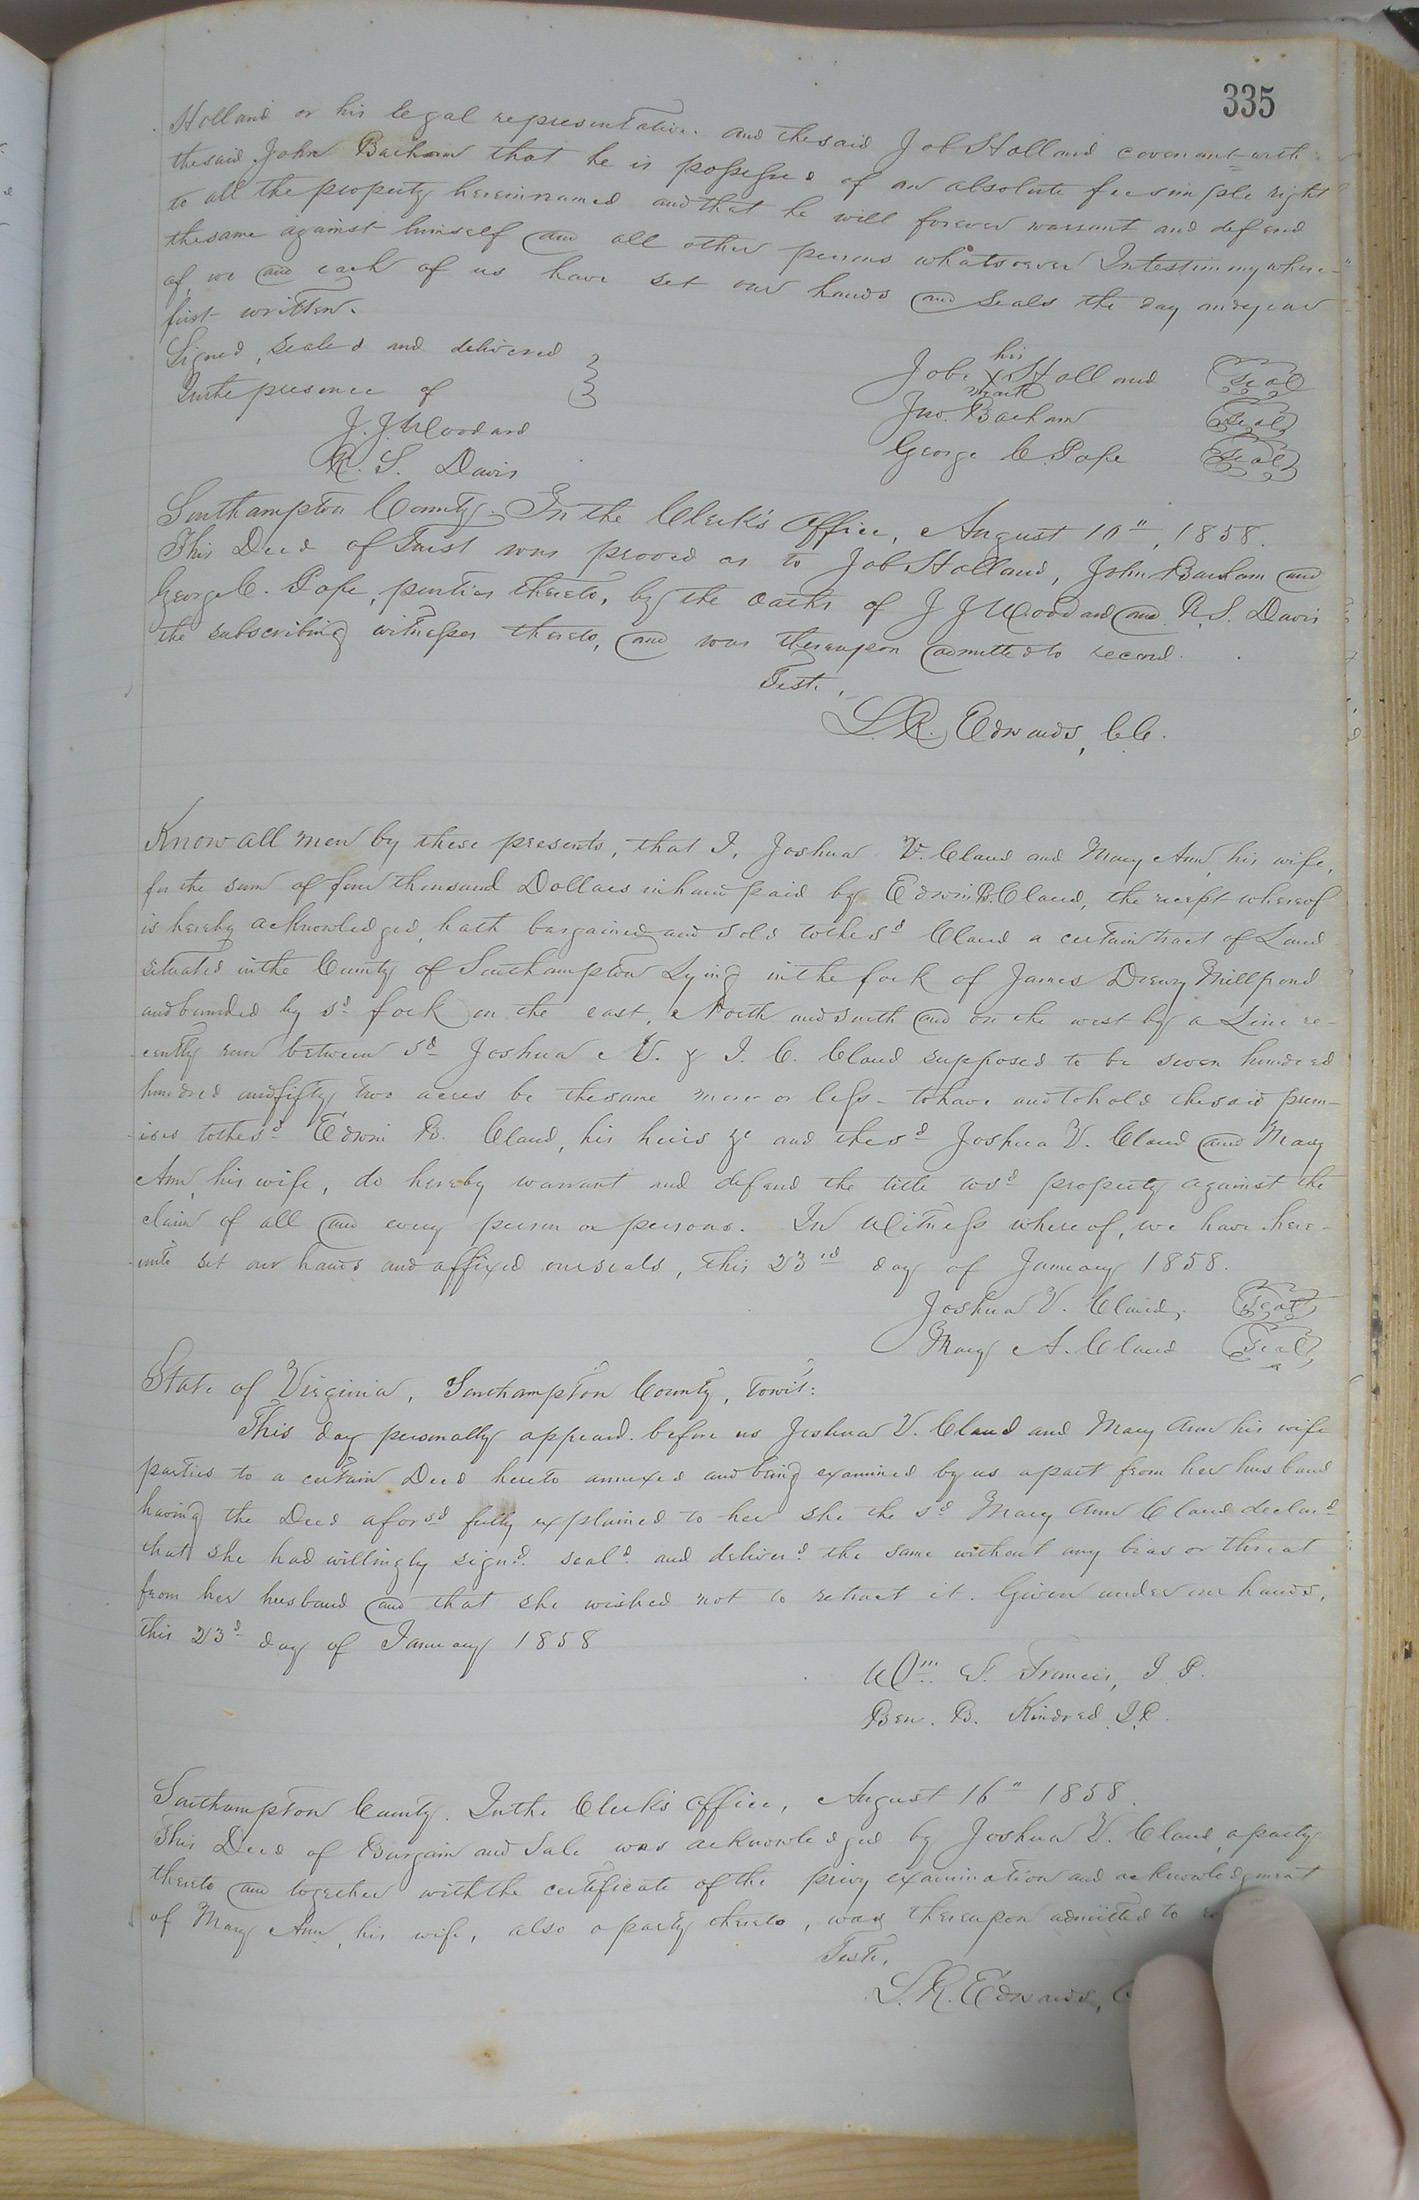 335
Holland or his legal representative. and the said Job Holland covenant with
the said John Barham that he is possessed of an absolute fee simple right
to all the property herein named and that he will forever warrant and defend
the same against himself and all other persons whatsoever In testimony where-
of, we and each of us have set our hands and seals the day and year
first written.
Signed, sealed and delivered
In the presence of
J. J. Woodard
R. S. Davis
his
Job X Holland Seal
mark
Jno. Barham Seal
George C. Pope Seal
Southampton County. In the Clerk's Office, August 10", 1858.
This Deed of Trust was proved as to Job Holland, John Barham and
George C. Pope, parties thereto, by the oaths of J J Woodard and R. S. Davis
the subscribing witnesses thereto, and was thereupon admitted to record.
Teste,
L. R. Edwards, C.C.
Know all men by these presents, that I, Joshua V. Claud and Mary Ann, his wife,
for the sum of four thousand Dollars in hand paid by Edwin B. Claud, the receipt whereof
is hereby acknowledged, hath bargained and sold to the sd Claud a certain tract of Land
situated in the County of Southampton Lying in the fork of James Drewry Millpond
and bounded by sd fork on the east, North and south and on the west by a Line re-
cently run between sd Joshua V. & I. C. Claud supposed to be seven hundred
hundred and fifty two acres be the same more or less - to have and to hold the said prem-
ises to the sd Edwin B. Claud, his heirs &c and the sd Joshua V. Claud and Mary
Ann, his wife, do hereby warrant and defend the title to sd property against the
claim of all and every person or persons. In Witness whereof, we have here-
unto set our hands and affixed our seals, this 23rd day of January 1858.
Joshua V. Claud, Seal
Mary A. Claud Seal
State of Virginia, Southampton County, towit:
This day personally appeard before us Joshua V. Claud and Mary Ann his wife
parties to a certain Deed hereto annexed and being examined by us apart from her husband
having the Deed aforsd fully explained to her she the sd Mary Ann Claud declard
that she had willingly signd. seald. and deliverd the same without any bias or threat
from her husband and that she wished not to retract it. Given under our hands,
this 23d day of January 1858
Wm. S. Francis, J. P.
Ben. B. Kindred J.P.
Southampton County. In the Clerk's Office, August 16" 1858.
This Deed of Bargain and Sale was acknowledged by Joshua V. Claud, a party
thereto and together with the certificate of the privy examination and acknowledgment
of Mary Ann, his wife, also a party thereto, was thereupon admitted to
Teste,
L. R. Edwards,